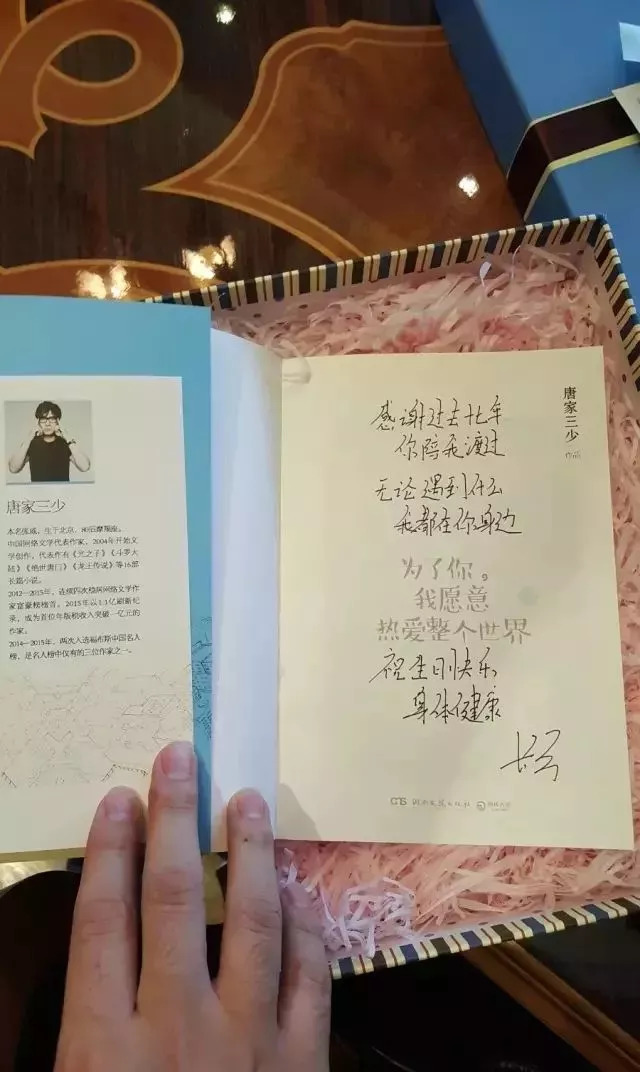 唐家三少
本名张威，生于北京，80后摩羯座。
中国网络文学代表作家，2004年开始文
学创作，代表作有《光之子》《斗罗大
陆》《绝世唐门》《龙王传说》等16部
长篇小说。
2012—2015年，连续四次稳居网络文学作
家富豪榜榜首。2015年以1.1亿刷新纪
录，成为首位年版税收入突破一亿元的
作家。
2014—2015年，两次入选福布斯中国名人
榜，是名人榜中仅有的三位作家之一。
唐家三少
作品
感谢过去
你陪我渡过
无论遇到什么
我都在你身边
为了你，
我愿意
热爱整个世界
祝生日快乐
身体健康
湖南文艺出版社